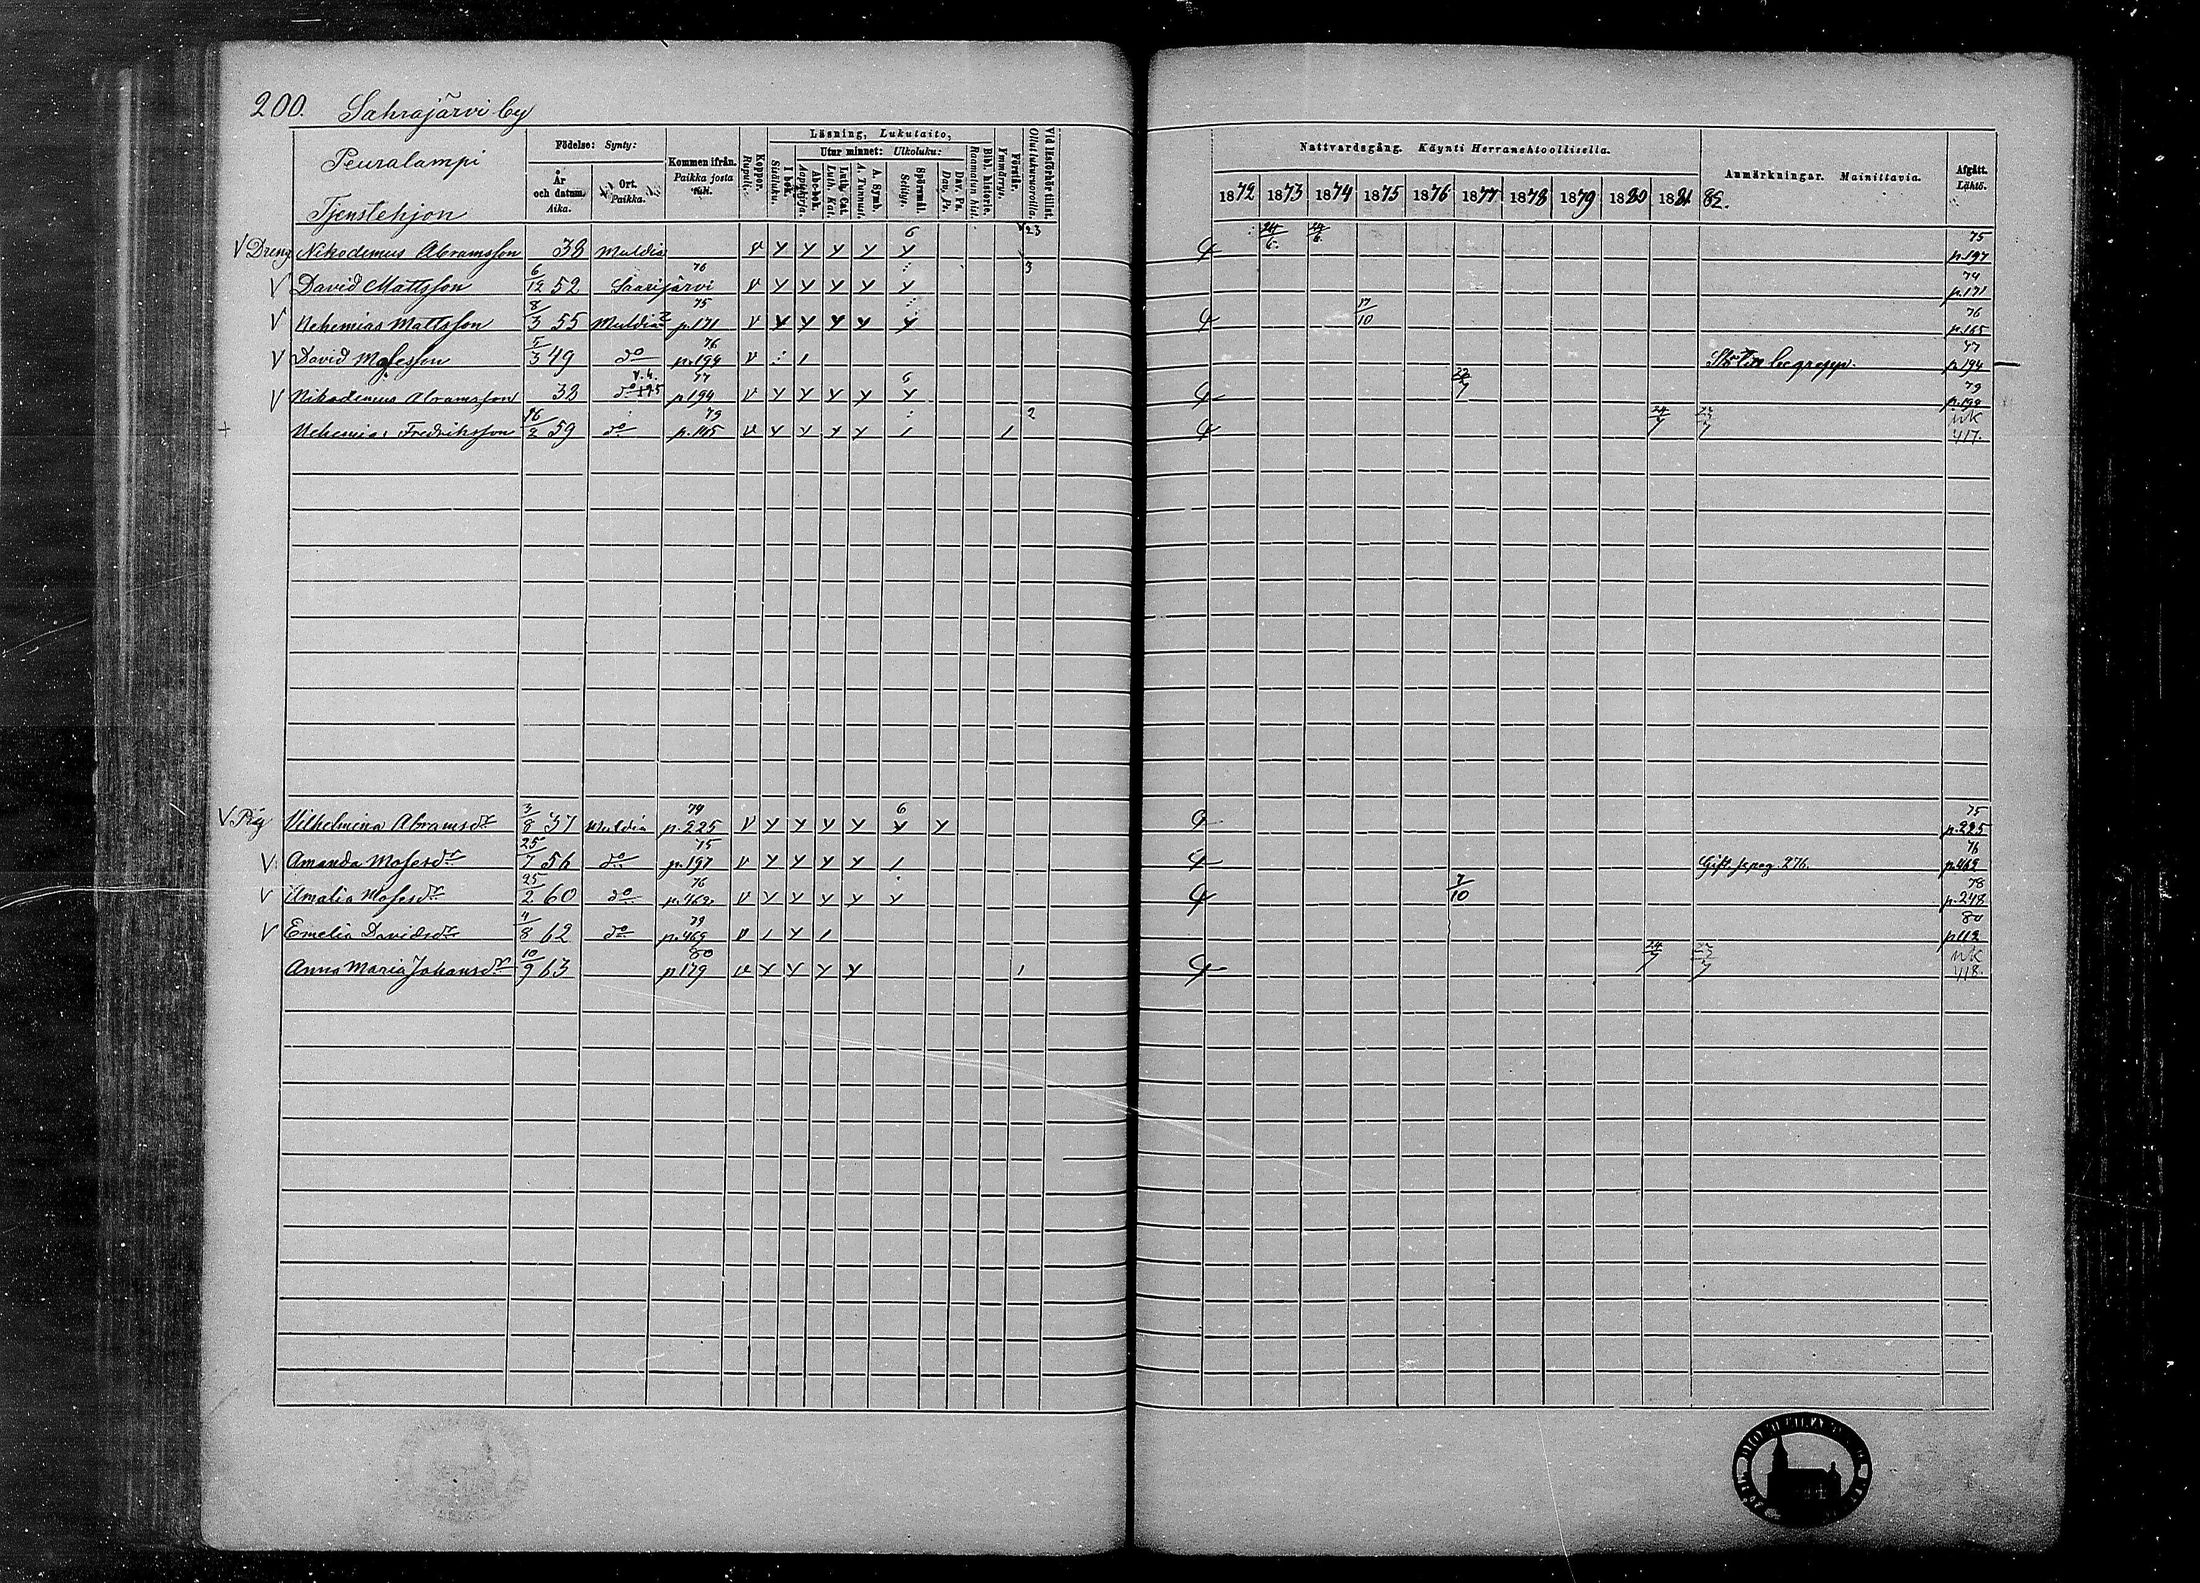 200. Sahrajärvi by
Peuralampi
Tjenstehjon
Födelse: Synty:
År och datum. Aika.
Ort. Paikka.
Kommen ifrån. Paikka josta tuli.
Koppor. Rupuli.
Läsning, Lukutaito,
I bok. Sisäluku.
Utur minnet: Ulkoluku:
Abc-bok. Aapiskirja.
Luth. Cat. Luth. Kat.
A. Symb. A. Tunnust.
Spörsmål. Selitys.
Dav. Ps. Dav. Ps.
Bibl. historie. Raamatun hist.
Förstår. Ymmärrys.
Vid läsförhör tillst. Ollut lukuvuorolla.
Nattvardsgång. Käynti Herranehtoollisella.
1872 1873 1874 1875 1876 1877 1878 1879 1880 1881 82.
Anmärkningar. Mainittavia.
Afgått. Lähtö.
V Dreng Nikodemus Abramsson 38 Muldia V Y Y Y Y 6 Y 23 24/6. 75 p.197
V David Mattsson 6/12 52 Saarijärvi 76 V Y Y Y Y Y 3 74 p.171
V Nehemias Mattsson 8/3 55 Muldia 75 p.171 V Y Y Y Y Y 17/10 76 p.165
V David Mosesson 5/3 49 do 76 p.194 V 1 77 p.194
V Nikodemus Abramsson 38 do 77 p.194 V Y Y Y Y 6 Y 79 p.199
+ Nehemias Fredriksson 16/2 59 do 79 p.145 V Y Y Y Y 1 1 2 24/7 NK 417.
V Pig Vilhelmina Abramsdr 3/8 37 Muldia 74 p.225 V Y Y Y Y 6 Y Y 75 p.225
V Amanda Mosesdr 25/7 56 do 75 p.197 V Y Y Y Y 1 Gift, se pag. 276. 76 p.462
V Amalia Mosesdr 25/2 60 do 76 p.462. V Y Y Y Y Y 7/10 78 p.248
V Emelia Davidsdr 4/8 62 do 79 p.469 V 1 Y 1 80 p.112
Anna Maria Johansdr 10/9 63 80 p.179 V Y Y Y Y 1 24/7 NK 418.